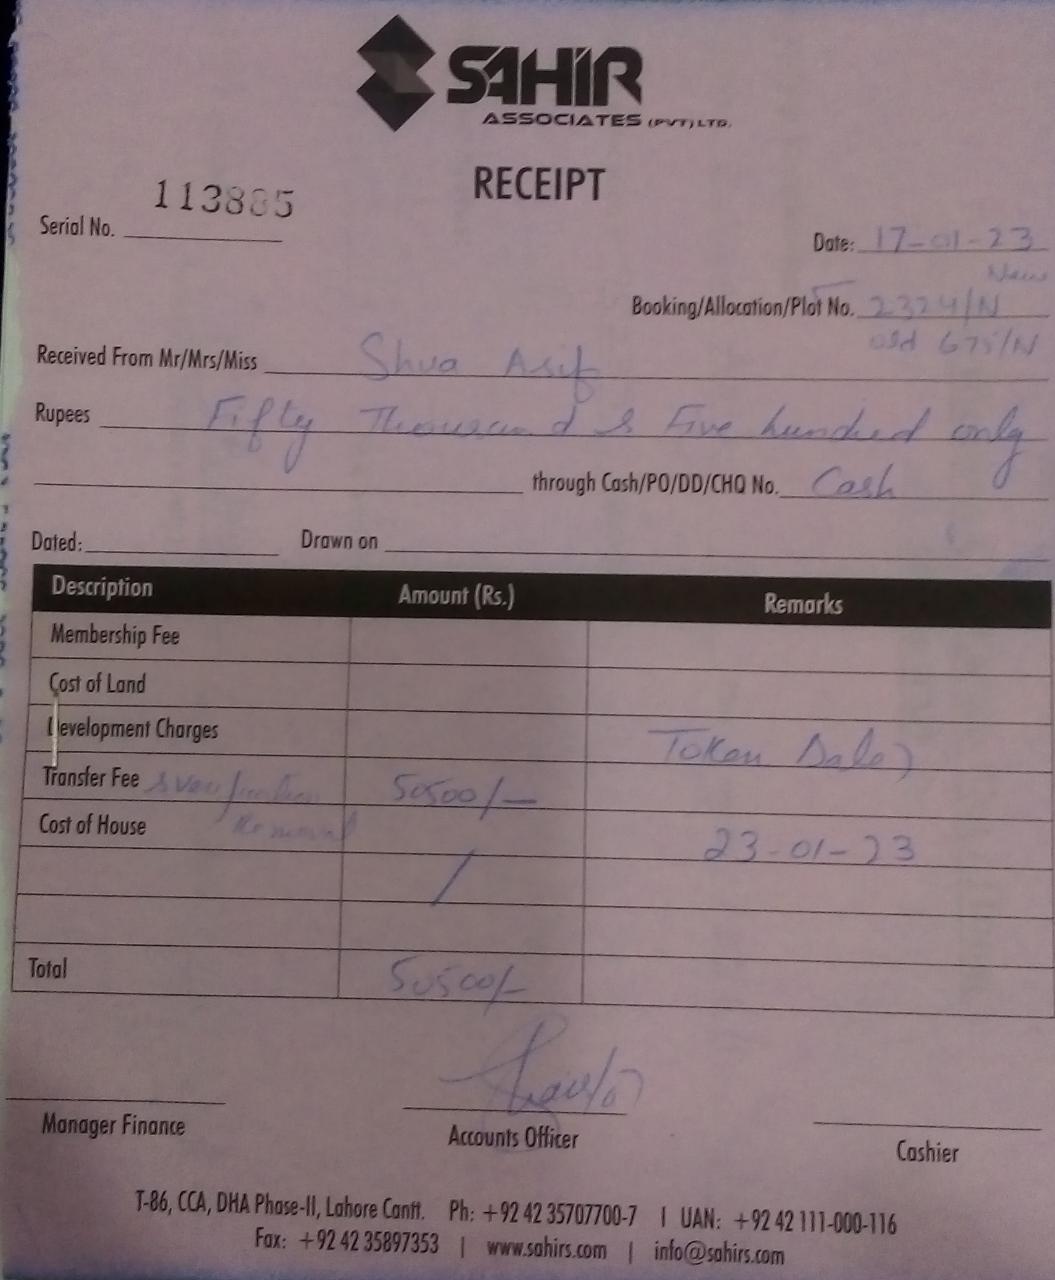 SAHIR
ASSOCIATES (PVT) LTD.
RECEIPT
Serial No. 113885
Date: 17-01-23
New
Booking/Allocation/Plot No. 2324/N
old 675/N
Received From Mr/Mrs/Miss Shua Asif
Rupees Fifty Thousand & Five hundred only
through Cash/PO/DD/CHQ No. Cash
Dated: Drawn on
Description Amount (Rs.) Remarks
Membership Fee
Cost of Land
Development Charges Token
Transfer Fee & Verification 50500/-
Cost of House 23-01-23
Total 50500/-
Manager Finance Accounts Officer Cashier
T-86, CCA, DHA Phase-II, Lahore Cantt. Ph: +92 42 35707700-7 | UAN: +92 42 111-000-116
Fax: +92 42 35897353 | www.sahirs.com | info@sahirs.com